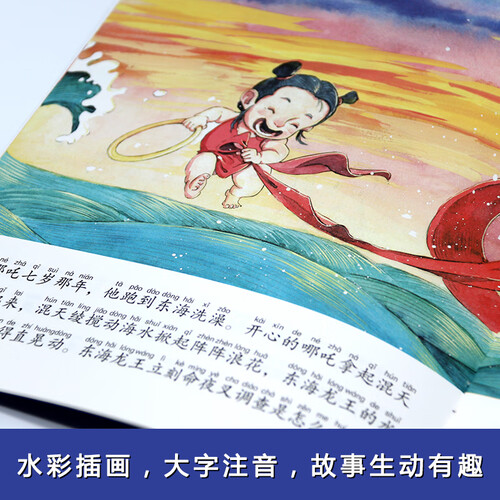 né zhā qī suì nà nián tā pǎo dào dōng hǎi xǐ zǎo kāi xīn de né zhā ná qǐ hùn tiān
哪吒七岁那年，他跑到东海洗澡。开心的哪吒拿起混天
lái hùn tiān líng jiǎo dòng hǎi shuǐ xiān qǐ zhèn zhèn làng huā dōng hǎi lóng wáng de shuǐ
来，混天绫搅动海水掀起阵阵浪花，东海龙王的水
de zhí huàng dòng dōng hǎi lóng wáng lì kè mìng yè chā diào chá shì zěn me
得直晃动。东海龙王立刻命夜叉调查是怎么
水彩插画，大字注音，故事生动有趣